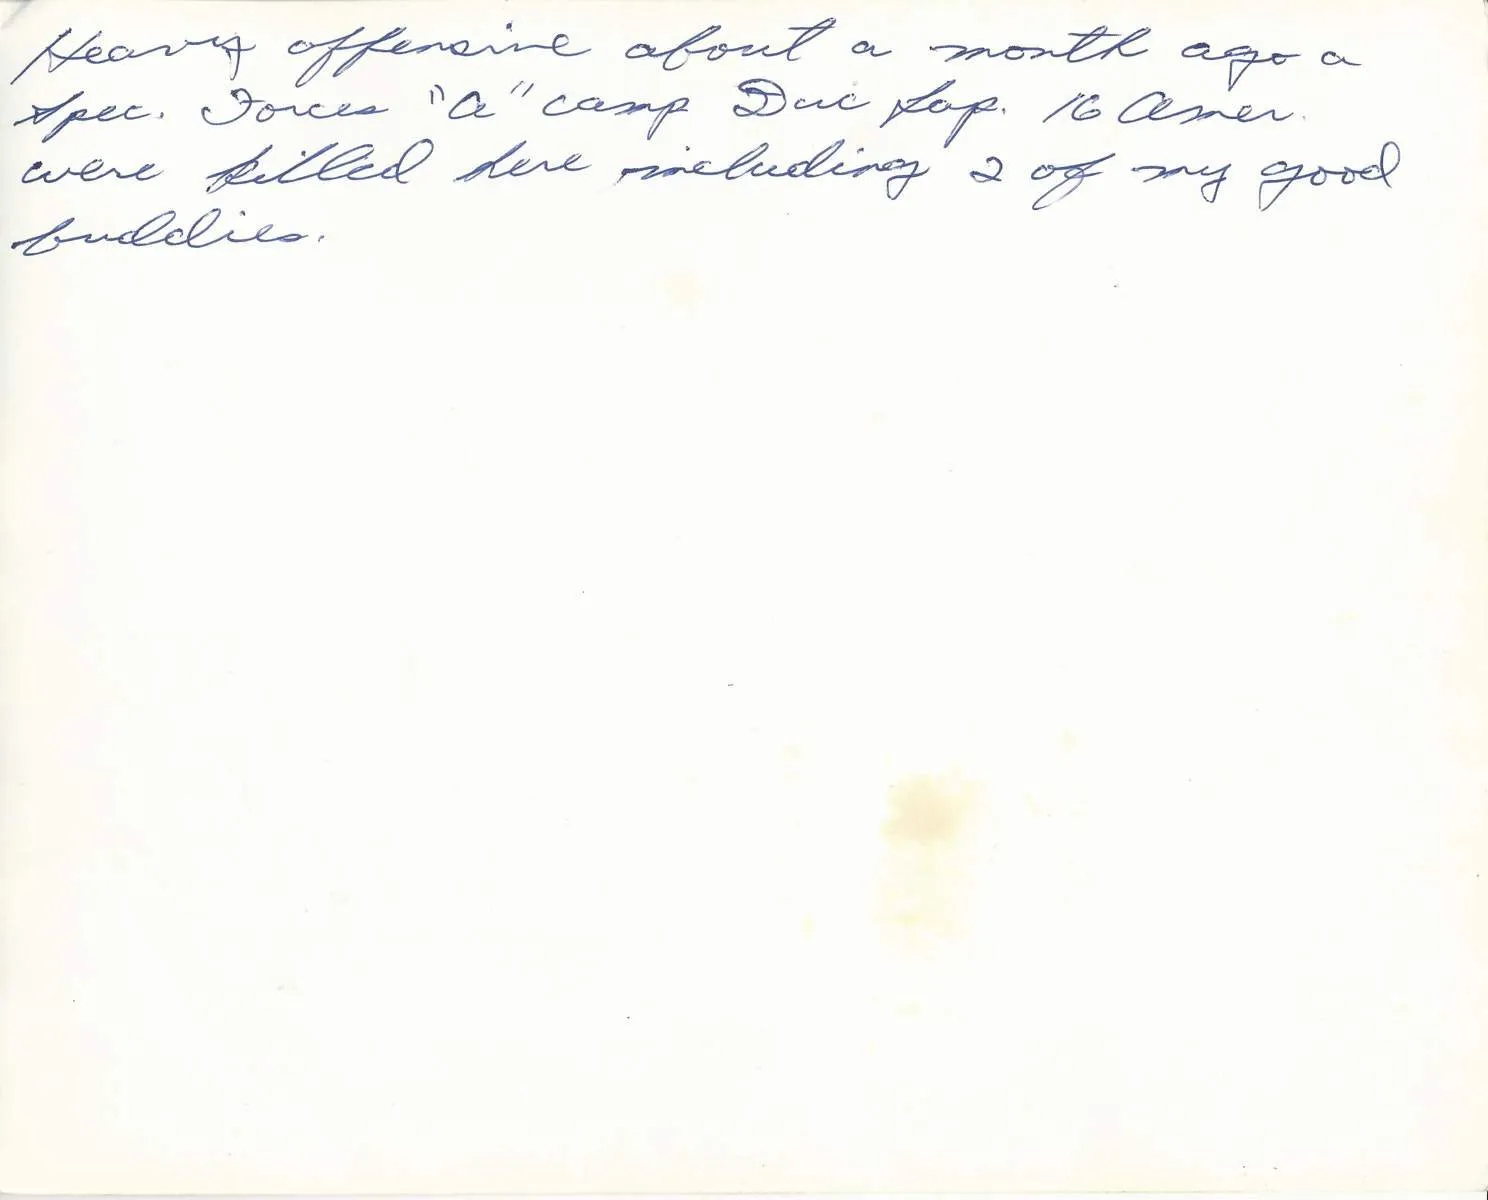 Heavy offensive about a month ago a
Spec. Forces "A" camp Duc Lap. 16 Amer.
were killed here including 2 of my good
buddies.